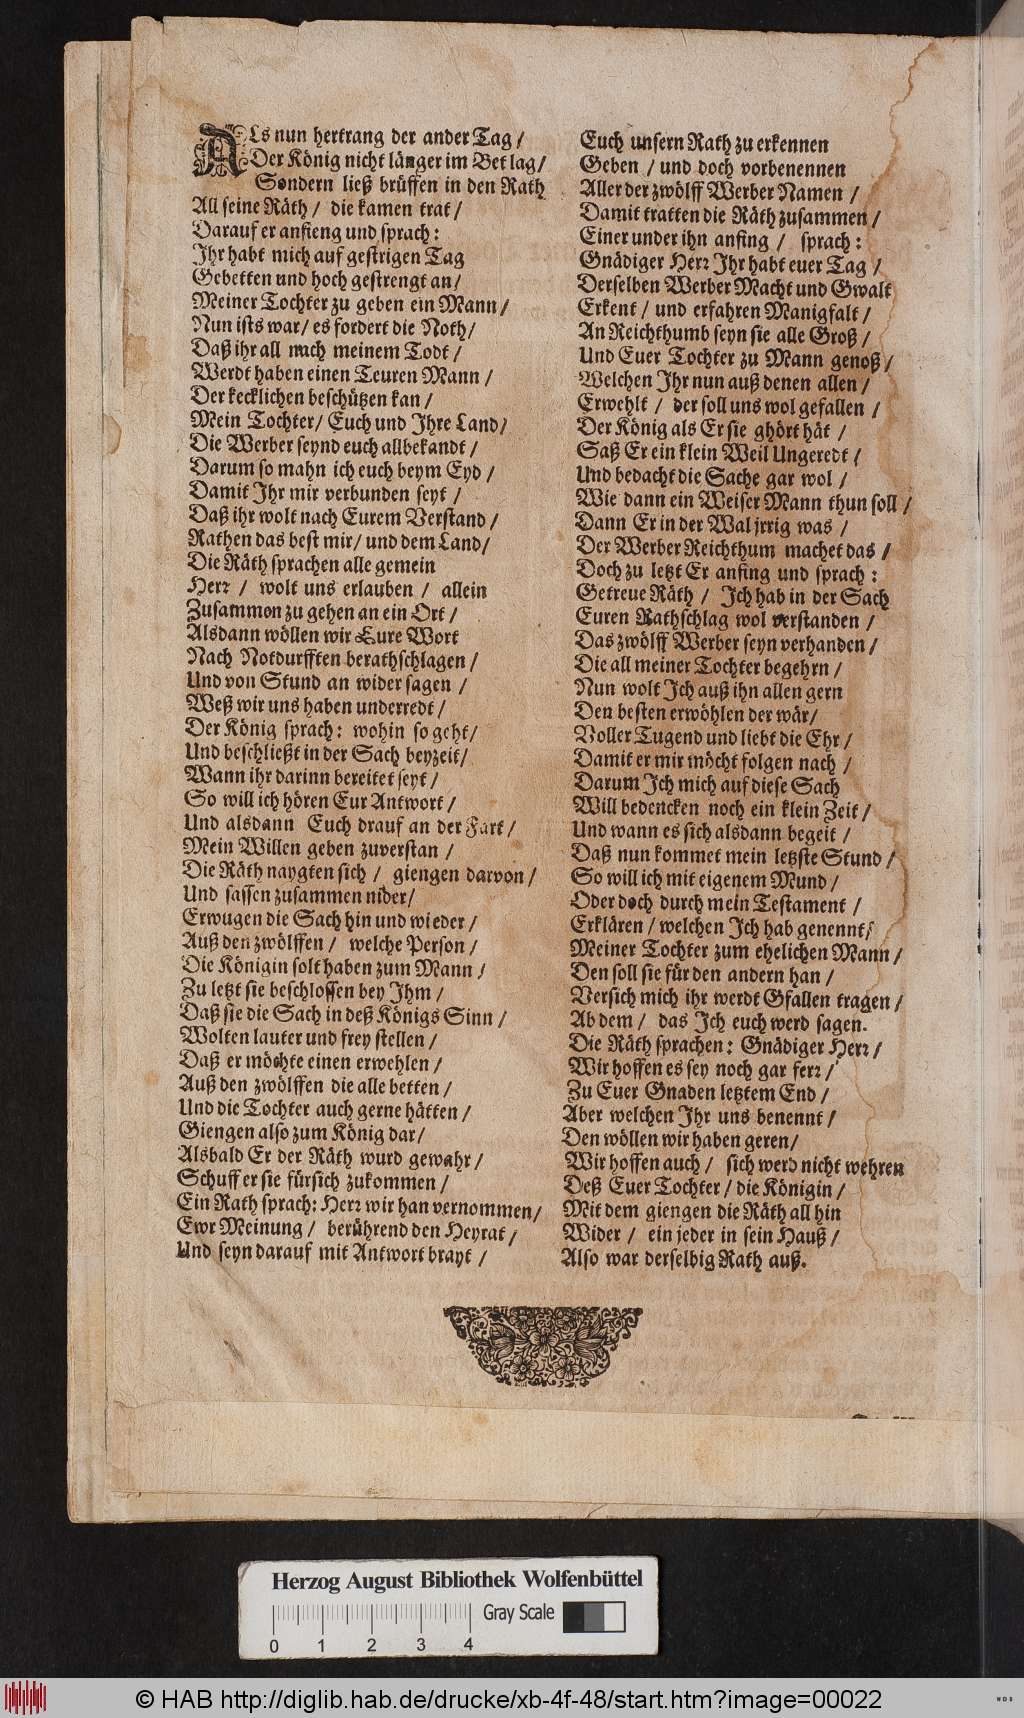 ALs nun hertrang der ander Tag /
Der König nicht länger im Bet lag /
Sondern ließ brüffen in den Rath
All seine Räth / die kamen trat /
Darauf er anfieng und sprach:
Ihr habt mich auf gestrigen Tag
Gebetten und hoch gestrengt an /
Meiner Tochter zu geben ein Mann /
Nun ists war / es fordert die Noth /
Daß ihr all nach meinem Todt /
Werdt haben einen Teuren Mann /
Der kecklichen beschützen kan /
Mein Tochter / Euch und Ihre Land /
Die Werber seynd euch allbekandt /
Darum so mahn ich euch beym Eyd /
Damit Ihr mir verbunden seyt /
Daß ihr wolt nach Eurem Verstand /
Rathen das best mir / und dem Land /
Die Räth sprachen alle gemein
Herr / wolt uns erlauben / allein
Zusammen zu gehen an ein Ort /
Alsdann wöllen wir Eure Wort
Nach Notdurfften berathschlagen /
Und von Stund an wider sagen /
Weß wir uns haben underredt /
Der König sprach: wohin so geht /
Und beschließt in der Sach beyzeit /
Wann ihr darinn bereitet seyt /
So will ich hören Eur Antwort /
Und alsdann Euch drauf an der Fart /
Mein Willen geben zuverstan /
Die Räth naygten sich / giengen darvon /
Und sassen zusammen nider /
Erwugen die Sach hin und wieder /
Auß den zwölffen / welche Person /
Die Königin solt haben zum Mann /
Zu letzt sie beschlossen bey Ihm /
Daß sie die Sach in deß Königs Sinn /
Wolten lauter und frey stellen /
Daß er möchte einen erwehlen /
Auß den zwölffen die alle betten /
Und die Tochter auch gerne hätten /
Giengen also zum König dar /
Alsbald Er der Räth wurd gewahr /
Schuff er sie fürsich zukommen /
Ein Rath sprach: Herr wir han vernommen /
Ewr Meinung / berührend den Heyrat /
Und seyn darauf mit Antwort brayt /
Euch unsern Rath zu erkennen
Geben / und doch vorbenennen
Aller der zwölff Werber Namen /
Damit tratten die Räth zusammen /
Einer under ihn anfing / sprach:
Gnädiger Herr Ihr habt euer Tag /
Derselben Werber Macht und Gwalt
Erkent / und erfahren Manigfalt /
An Reichthumb seyn sie alle Groß /
Und Euer Tochter zu Mann genoß /
Welchen Ihr nun auß denen allen /
Erwehlt / der soll uns wol gefallen /
Der König als Er sie ghört hät /
Saß Er ein klein Weil Ungeredt /
Und bedacht die Sache gar wol /
Wie dann ein Weiser Mann thun soll /
Dann Er in der Wal jrrig was /
Der Werber Reichthum machet das /
Doch zu letzt Er anfing und sprach:
Getreue Räth / Ich hab in der Sach
Euren Rathschlag wol verstanden /
Das zwölff Werber seyn verhanden /
Die all meiner Tochter begehrn /
Nun wolt Ich auß ihn allen gern
Den besten erwöhlen der wär /
Voller Tugend und liebt die Ehr /
Damit er mir möcht folgen nach /
Darum Ich mich auf diese Sach
Will bedencken noch ein klein Zeit /
Und wann es sich alsdann begeit /
Daß nun kommet mein letzste Stund /
So will ich mit eigenem Mund /
Oder doch durch mein Testament /
Erklären / welchen Ich hab genennt /
Meiner Tochter zum ehelichen Mann /
Den soll sie für den andern han /
Versich mich ihr werdt Gfallen tragen /
Ab dem / das Ich euch werd sagen.
Die Räth sprachen: Gnädiger Herr /
Wir hoffen es sey noch gar ferr /
Zu Euer Gnaden letztem End /
Aber welchen Ihr uns benennt /
Den wöllen wir haben geren /
Wir hoffen auch / sich werd nicht wehren
Deß Euer Tochter / die Königin /
Mit dem giengen die Räth all hin
Wider / ein jeder in sein Hauß /
Also war derselbig Rath auß.
Herzog August Bibliothek Wolfenbüttel
Gray Scale
0 1 2 3 4
© HAB http://diglib.hab.de/drucke/xb-4f-48/start.htm?image=00022